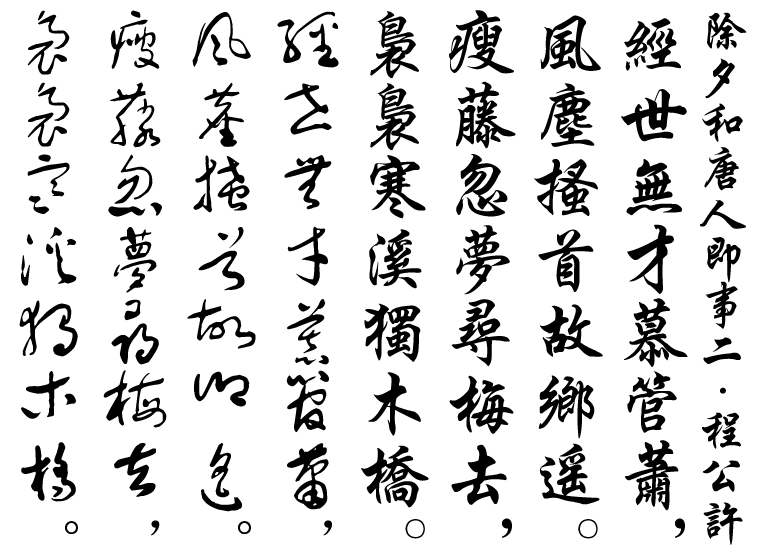 除夕和唐人即事二．程公許
經世無才慕管蕭，
風塵搔首故鄉遥。
瘦藤忽夢尋梅去，
裊裊寒溪獨木橋。
經世無才慕管蕭，
風塵搔首故鄉遥。
瘦藤忽夢尋梅去，
裊裊寒溪獨木橋。